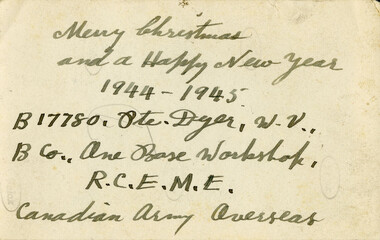 Merry Christmas
and a Happy New Year
1944-1945
B 17780. Pte. Dyer, W.V.,
B Co., One Base Workshop,
R.C.E.M.E.
Canadian Army Overseas